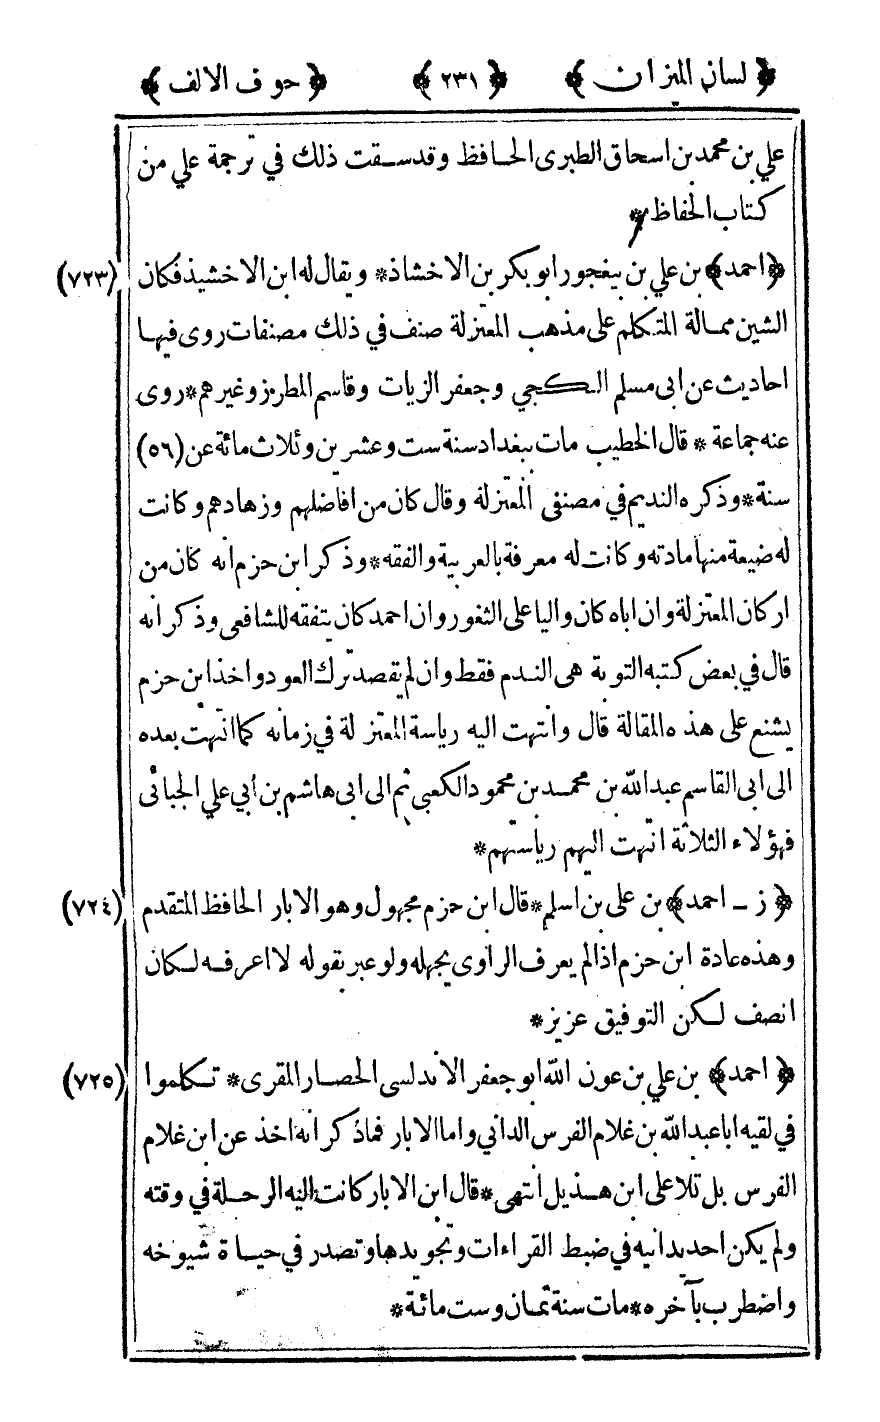 ﴿ لسان الميزان ﴾ ﴿ ٢٣١ ﴾ ﴿ حرف الالف ﴾
علي بن محمد بن اسحاق الطبرى الحافظ وقد سبقت ذلك في ترجمة علي من
كتاب الحفاظ *
(٧٢٣) ﴿ احمد ﴾ بن علي بن بيغجور ابو بكر بن الاخشاذ * ويقال له ابن الاخشيذ فكان
الشين ممالة المتكلم على مذهب المعتزلة صنف في ذلك مصنفات روى فيها
احاديث عن ابى مسلم الكجي وجعفر الزيات وقاسم المطرز وغيرهم * روى
عنه جماعة * قال الخطيب مات ببغداد سنة ست وعشرين وثلاث مائة عن (٥٦)
سنة * وذكره النديم في مصنفى المعتزلة وقال كان من افاضلهم وزهادهم وكانت
له ضيعة منها مادته وكانت له معرفة بالعربية والفقه * وذكر ابن حزم انه كان من
اركان المعتزلة وان اباه كان واليا على الثغور وان احمد كان يتفقه للشافعى وذكر انه
قال في بعض كتبه التوبة هى الندم فقط وان لم يقصد ترك العود واخذ ابن حزم
يشنع على هذه المقالة قال وانتهت اليه رياسة المعتزلة في زمانه كما انتهت بعده
الى ابى القاسم عبد الله بن محمد بن محمود الكعبى ثم الى ابى هاشم بن ابي علي الجبائى
فهؤلاء الثلاثة انتهت اليهم رياستهم *
(٧٢٤) ﴿ ز - احمد ﴾ بن على بن اسلم * قال ابن حزم مجهول وهو الابار الحافظ المتقدم
وهذه عادة ابن حزم اذا لم يعرف الراوى يجهله ولو عبر بقوله لا اعرفه لكان
انصف لكن التوفيق عزيز *
(٧٢٥) ﴿ احمد ﴾ بن علي بن عون الله ابو جعفر الاندلسى الحصار المقرى * تكلموا
في لقيه ابا عبد الله بن غلام الفرس الداني واما الابار فما ذكر انه اخذ عن ابن غلام
الفرس بل تلا على ابن هذيل انتهى * قال ابن الابار كانت اليه الرحلة في وقته
ولم يكن احد يدانيه في ضبط القراءات وتجويدها وتصدر في حياة شيوخه
واضطرب بآخره * مات سنة ثمان وست مائة *